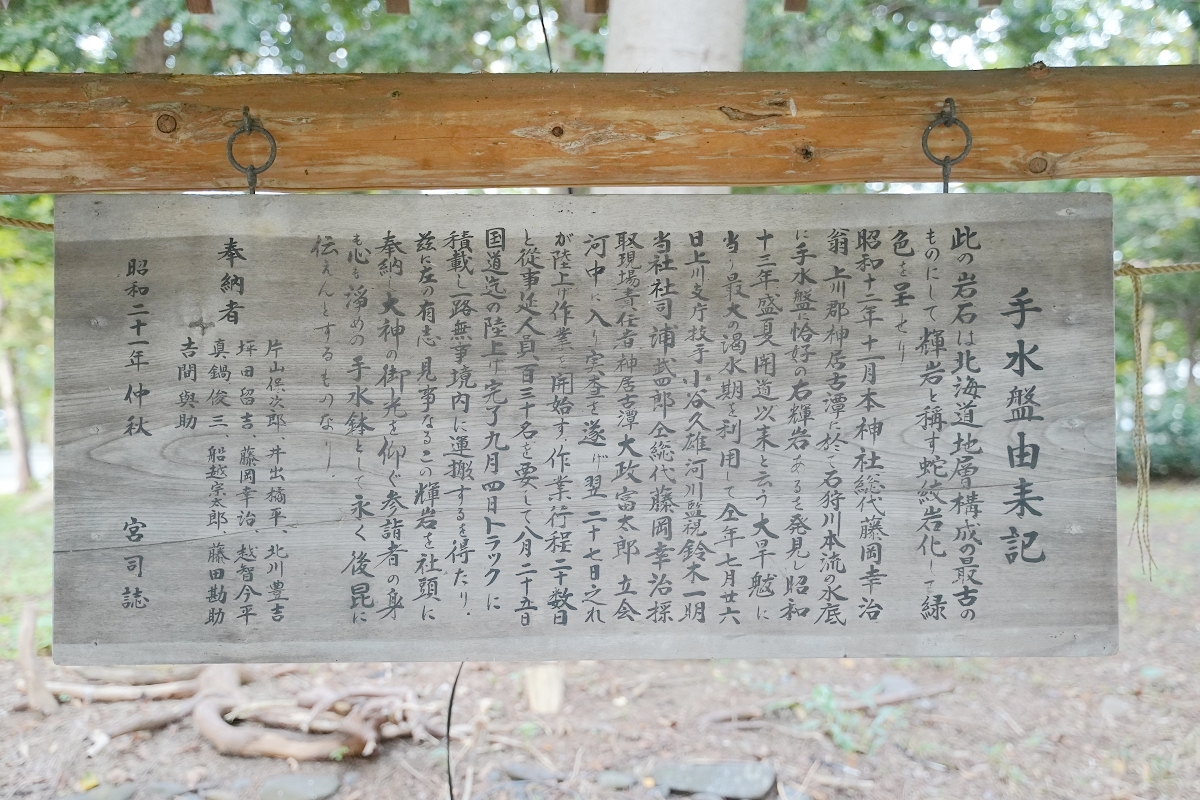 手水盤由来記
此の岩石は北海道地層構成の最古の
ものにして輝岩と称す蛇紋岩化して緑
色を呈せり
昭和十二年十一月本神社総代藤岡幸治
翁上川郡神居古潭に於て石狩川本流の水底
に手水盤に恰好の右輝岩あるを発見し昭和
十三年盛夏開道以来と云う大旱魃に
当り最大の渇水期を利用して仝年七月廿六
日上川支庁技手小谷久雄河川監視鈴木一明
当社社司浦武四郎仝総代藤岡幸治採
取現場責任者神居古潭大政富太郎立会
河中に入り実査を遂げ翌二十七日之れ
が陸上げ作業を開始す、作業行程二十数日
と従事延人員百三十名を要して八月二十五日
国道迄の陸上げ完了九月四日トラックに
積載し一路無事境内に運搬するを得たり、
茲に左の有志見事なるこの輝岩を社頭に
奉納し大神の御光を仰ぐ参詣者の身
も心も浄めの手水鉢として永く後昆に
伝えんとするものなり、
奉納者
片山保次郎、井出橘平、北川豊吉
坪田留吉、藤岡幸治、越智今平
真鍋俊三、船越宗太郎、藤田勘助
吉間與助
昭和二十一年仲秋 宮司誌